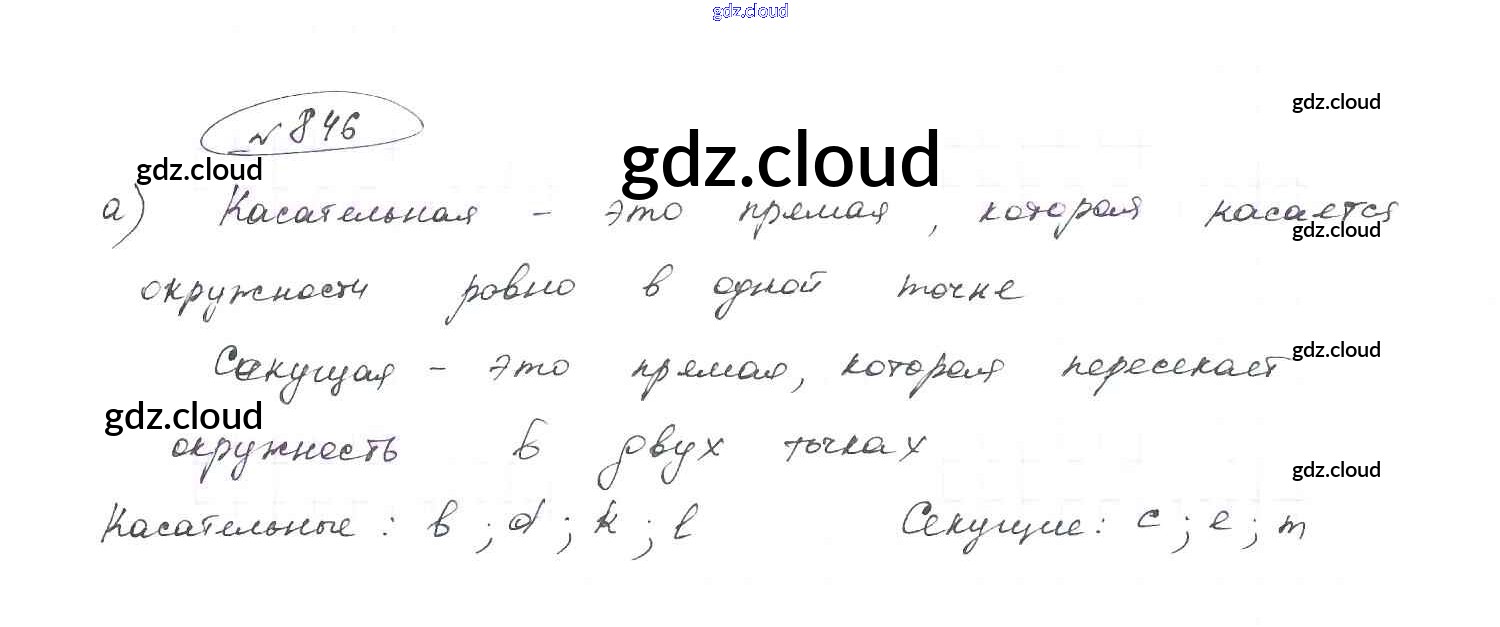 gdz.cloud
№ 846
gdz.cloud
gdz.cloud
gdz.cloud
а) Касательная - это прямая, которая касается
gdz.cloud
окружности ровно в одной точке
Секущая - это прямая, которая пересекает
gdz.cloud
gdz.cloud
окружность в двух точках
gdz.cloud
Касательные : b ; d ; k ; l Секущие : c ; e ; m